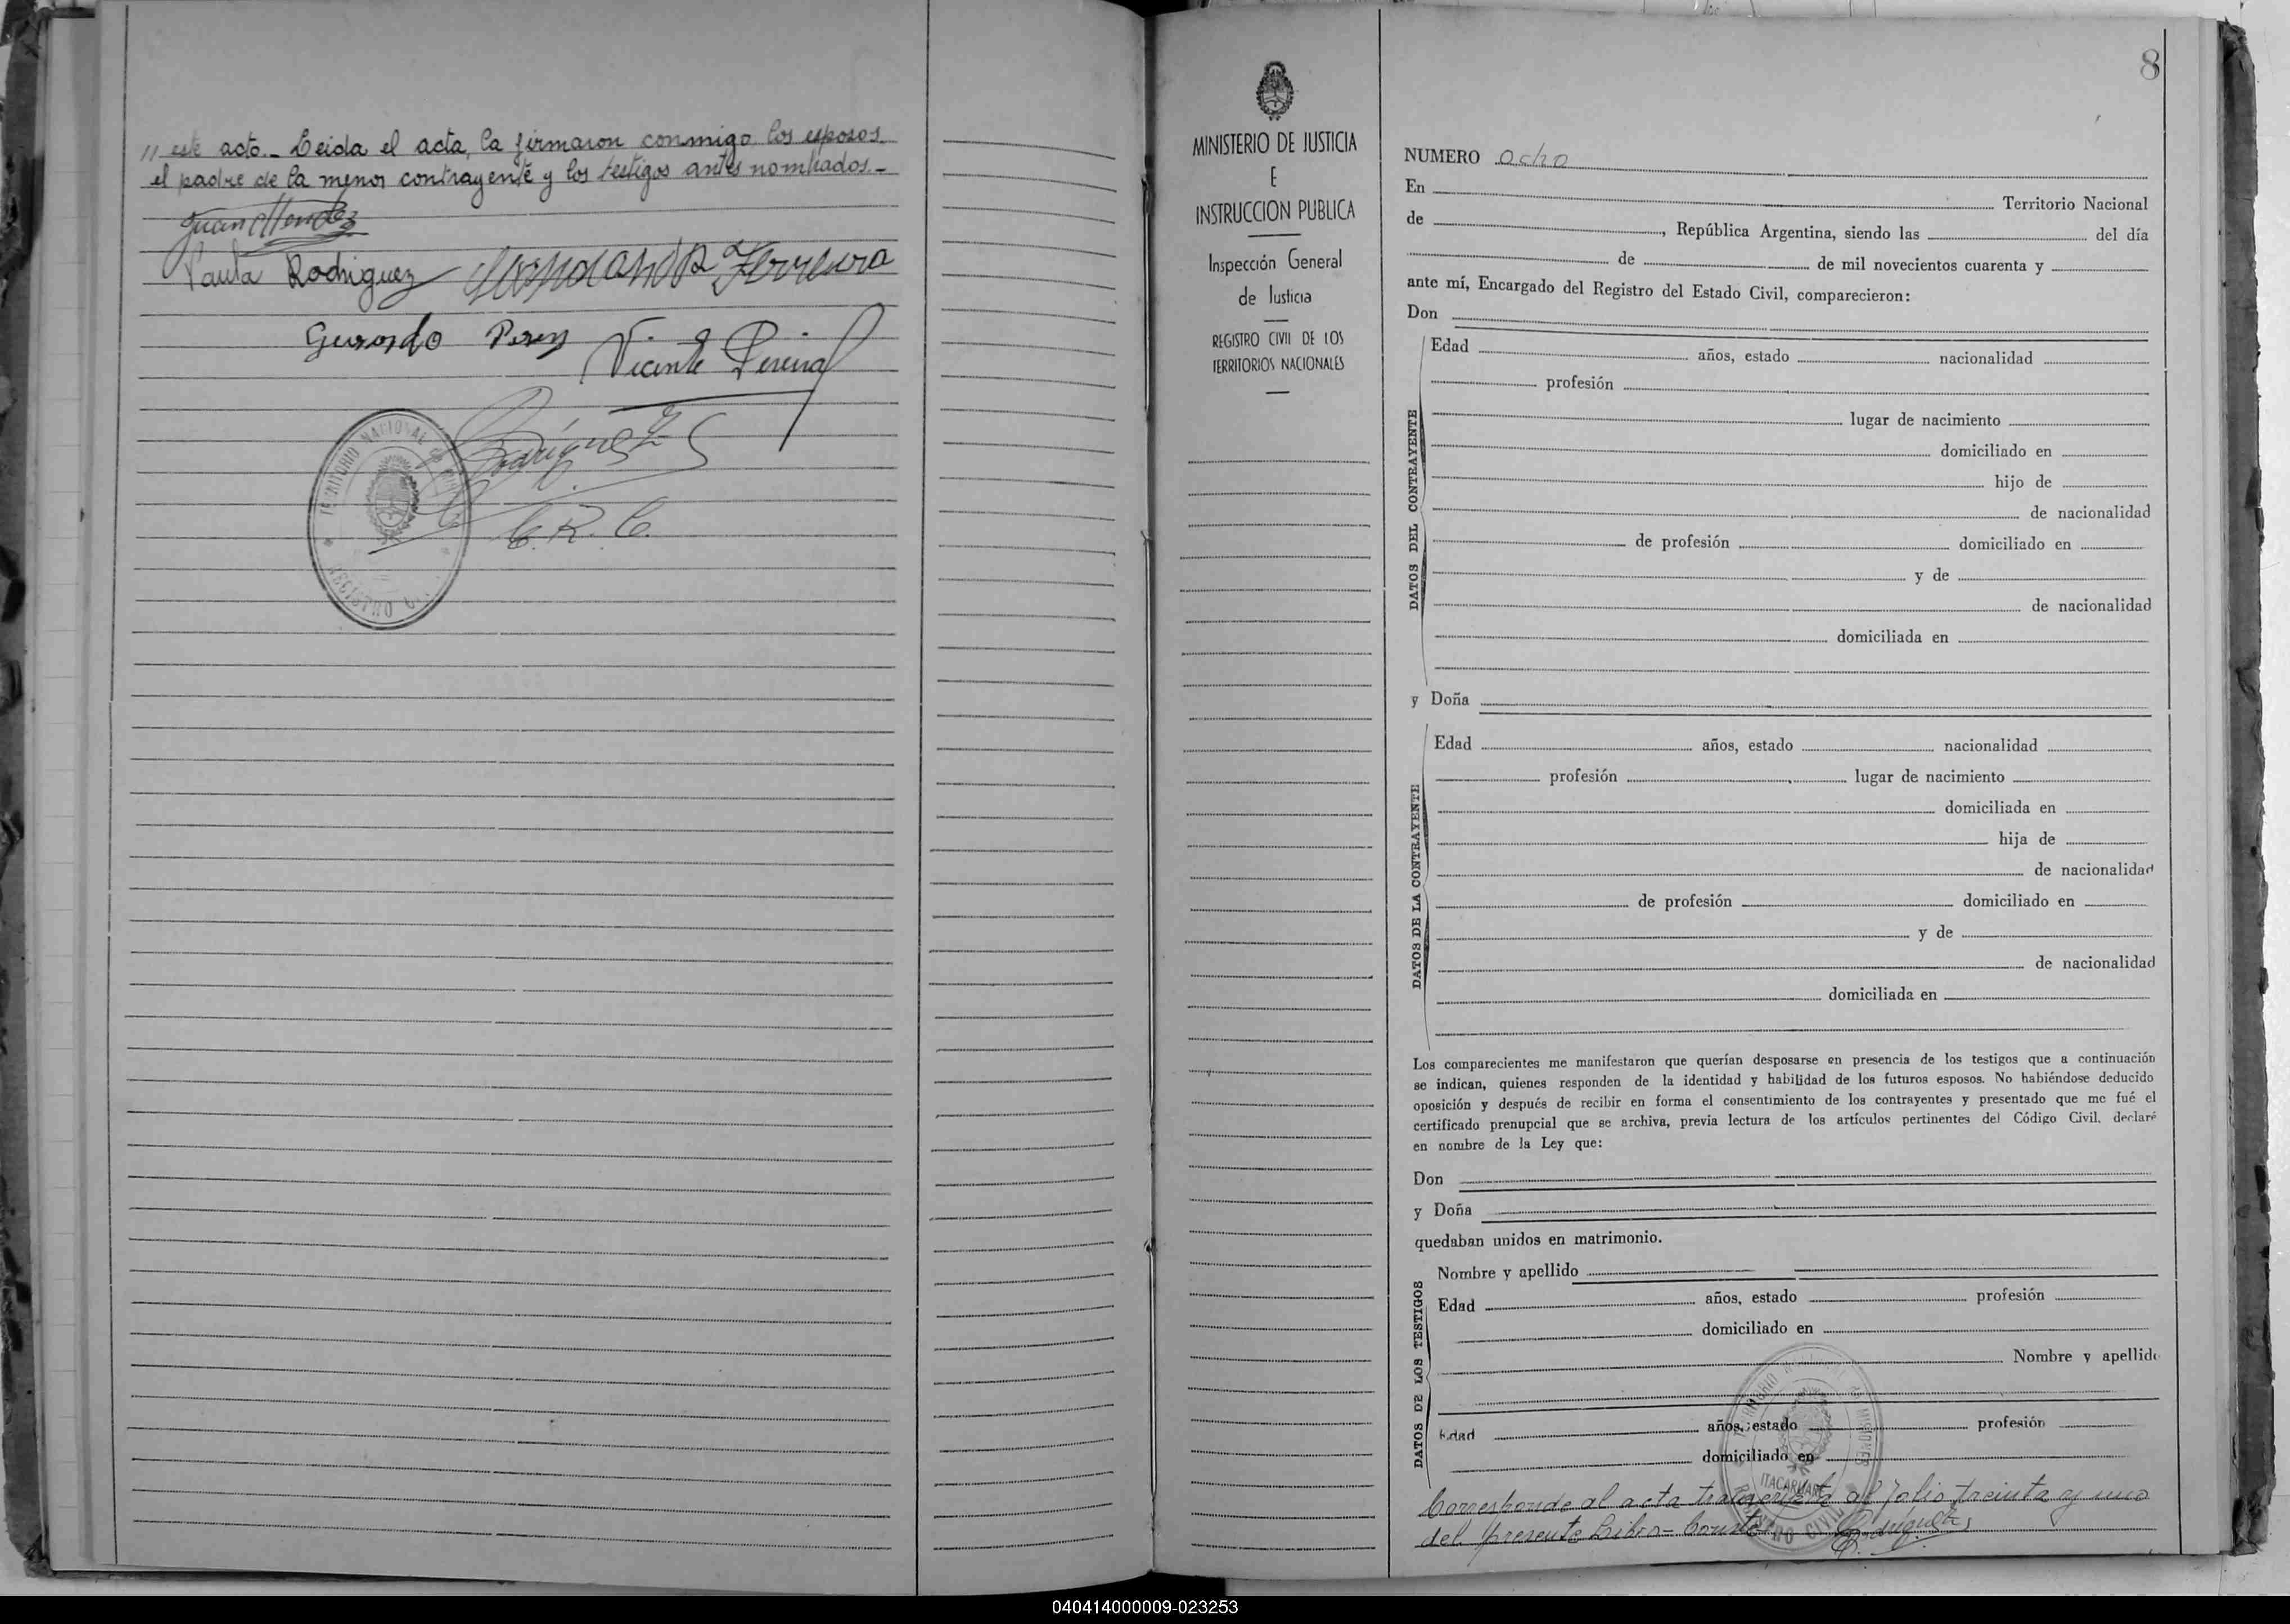 // este acto.- Leida el acta, la firmaron conmigo los esposos,
el padre de la menor contrayente y los testigos antes nombrados.-
Juan Mendez
Paula Rodriguez Ferreira
Gerardo Perez Vicente Pereira
Rodriguez
E. R. C.
TERRITORIO NACIONAL
REGISTRO
MINISTERIO DE JUSTICIA
E
INSTRUCCION PUBLICA
Inspección General
de Justicia
REGISTRO CIVIL DE LOS
TERRITORIOS NACIONALES
8
NUMERO ocho
En Territorio Nacional
de , República Argentina, siendo las del día
de de mil novecientos cuarenta y
ante mí, Encargado del Registro del Estado Civil, comparecieron:
Don
DATOS DEL CONTRAYENTE
Edad años, estado nacionalidad
profesión
lugar de nacimiento
domiciliado en
hijo de
de nacionalidad
de profesión domiciliado en
y de
de nacionalidad
domiciliada en
y Doña
DATOS DE LA CONTRAYENTE
Edad años, estado nacionalidad
profesión lugar de nacimiento
domiciliada en
hija de
de nacionalidad
de profesión domiciliado en
y de
de nacionalidad
domiciliada en
Los comparecientes me manifestaron que querían desposarse en presencia de los testigos que a continuación
se indican, quienes responden de la identidad y habilidad de los futuros esposos. No habiéndose deducido
oposición y después de recibir en forma el consentimiento de los contrayentes y presentado que me fué el
certificado prenupcial que se archiva, previa lectura de los artículos pertinentes del Código Civil, declaré
en nombre de la Ley que:
Don
y Doña
quedaban unidos en matrimonio.
DATOS DE LOS TESTIGOS
Nombre y apellido
Edad años, estado profesión
domiciliado en
Nombre y apellido
Edad años, estado profesión
domiciliado en
Corresponde al acta al folio treinta y uno
del presente Libro- Conste Rodriguez
ITACARUARE
040414000009-023253